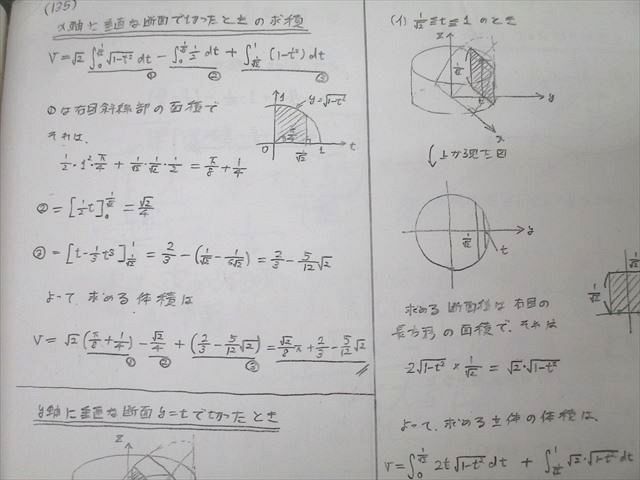 (135)
x軸に垂直な断面で切ったときの求積
V=√2 ∫₀^{1/√2} √(1-t²) dt - ∫₀^{1/√2} 1/2 dt + ∫_{1/√2}^1 (1-t²) dt
① ② ③
①は右図斜線部の面積で
それは、
1/2・1²・π/4 + 1/√2・1/√2・1/2 = π/8 + 1/4
1 y=√(1-t²)
π/4
O 1/√2 1 t
② = [1/2 t]₀^{1/√2} = √2/4
③ = [t - 1/3 t³]_{1/√2}^1 = 2/3 - (1/√2 - 1/6√2) = 2/3 - 5/12 √2
よって、求める体積は
V = √2 (π/8 + 1/4) - √2/4 + (2/3 - 5/12 √2) = √2/8 π + 2/3 - 5/12 √2
① ② ③
y軸に垂直な断面 y=t で切ったとき
z
(イ) 1/√2 ≦ t ≦ 1 のとき
z
1/√2
t
y
x
上から見た図
1/√2
y
t
1/√2
1/√2
求める断面積は右図の
長方形の面積で、それは
2√(1-t²) × 1/√2 = √2・√(1-t²)
よって、求める立体の体積は、
V = ∫₀^{1/√2} 2t√(1-t²) dt + ∫_{1/√2}^1 √2・√(1-t²) dt